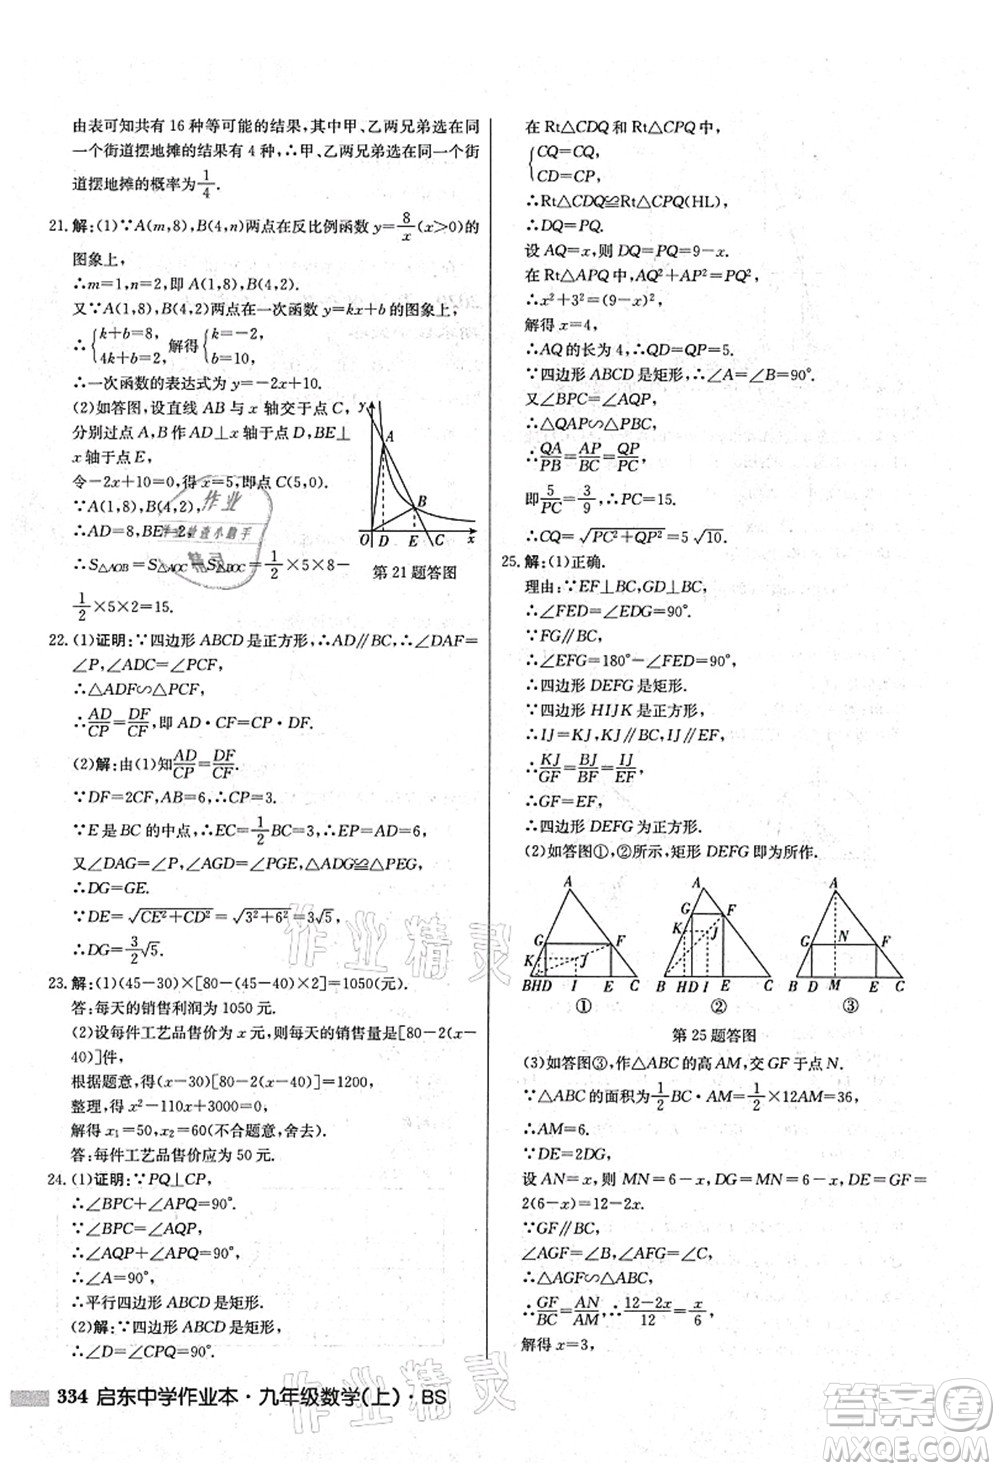 由表可知共有 16 种等可能的结果，其中甲、乙两兄弟选在同
一个街道摆地摊的结果有 4 种，∴甲、乙两兄弟选在同一个街
道摆地摊的概率为1/4.
21.解:(1)∵A(m,8),B(4,n)两点在反比例函数 y=8/x(x>0)的
图象上，
∴m=1,n=2,即 A(1,8),B(4,2).
又∵A(1,8),B(4,2)两点在一次函数 y=kx+b 的图象上，
∴{k+b=8, 4k+b=2, 解得{k=-2, b=10,
∴一次函数的表达式为 y=-2x+10.
(2)如答图，设直线 AB 与 x 轴交于点 C,
分别过点 A,B 作 AD⊥x 轴于点 D,BE⊥
x 轴于点 E.
令-2x+10=0,得 x=5,即点 C(5,0).
∵A(1,8),B(4,2),
∴AD=8,BE=2.
∴S△AOB=S△AOC-S△BOC=1/2×5×8-
1/2×5×2=15.
y
A
B
O D E C x
第 21 题答图
22.(1)证明:∵四边形 ABCD 是正方形，∴AD∥BC,∴∠DAF=
∠P,∠ADC=∠PCF,
∴△ADF∽△PCF,
∴AD/CP=DF/CF,即 AD·CF=CP·DF.
(2)解:由(1)知AD/CP=DF/CF.
∵DF=2CF,AB=6,∴CP=3.
∵E 是 BC 的中点，∴EC=1/2BC=3,∴EP=AD=6.
又∠DAG=∠P,∠AGD=∠PGE,∴△DAG≌△PEG,
∴DG=GE.
∵DE=√(CE²+CD²)=√(3²+6²)=3√5,
∴DG=3/2√5.
23.解:(1)(45-30)×[80-(45-40)×2]=1050(元).
答:每天的销售利润为 1050 元.
(2)设每件工艺品售价为 x 元，则每天的销售量是[80-2(x-
40)]件，
根据题意，得(x-30)[80-2(x-40)]=1200,
整理，得 x²-110x+3000=0,
解得 x₁=50,x₂=60(不合题意，舍去).
答:每件工艺品售价应为 50 元.
24.(1)证明:∵PQ⊥CP,
∴∠BPC+∠APQ=90°.
∵∠BPC=∠AQP,
∴∠AQP+∠APQ=90°.
∴∠A=90°.
∴平行四边形 ABCD 是矩形.
(2)解:∵四边形 ABCD 是矩形，
∴∠D=∠CPQ=90°.
在 Rt△CDQ 和 Rt△CPQ 中，
{CQ=CQ, CD=CP,
∴Rt△CDQ≌Rt△CPQ(HL),
∴DQ=PQ.
设 AQ=x,则 DQ=PQ=9-x.
在 Rt△APQ 中，AQ²+AP²=PQ²,
∴x²+3²=(9-x)²,
解得 x=4,
∴AQ 的长为 4,∴QD=QP=5.
∵四边形 ABCD 是矩形，∴∠A=∠B=90°.
又∠BPC=∠AQP,
∴△QAP∽△PBC.
∴QA/PB=AP/BC=QP/PC,
即5/PC=3/9,∴PC=15.
∴CQ=√(PC²+PQ²)=5√10.
25.解:(1)正确.
理由:∵EF⊥BC,GD⊥BC,
∴∠FED=∠GDE=90°.
∵FG∥BC,
∴∠EFG=180°-∠FED=90°,
∴四边形 DEFG 是矩形.
∵四边形 HIJK 是正方形，
∴IJ=KJ,KJ∥BC,∴KJ∥GF,IJ∥EF,
∴KJ/GF=BJ/BF=IJ/EF,
∴GF=EF,
∴四边形 DEFG 为正方形.
(2)如答图①,②所示，矩形 DEFG 即为所作.
A
G F
K J
B H D I E C
①
A
G F
K J
B H D I E C
②
A
G N F
B D M E C
③
第 25 题答图
(3)如答图③,作△ABC 的高 AM,交 GF 于点 N.
∵△ABC 的面积为1/2BC·AM=1/2×12×AM=36,
∴AM=6.
∵DE=2DG,
设 AN=x,则 MN=6-x,DG=MN=6-x,DE=GF=
2(6-x)=12-2x.
∵GF∥BC,
∠AGF=∠B,∠AFG=∠C,
∴△AGF∽△ABC,
∴GF/BC=AN/AM,∴(12-2x)/12=x/6,
解得 x=3,
334 启东中学作业本·九年级数学(上)·BS
作业精灵
作业精灵
答案圈
MXQE.COM